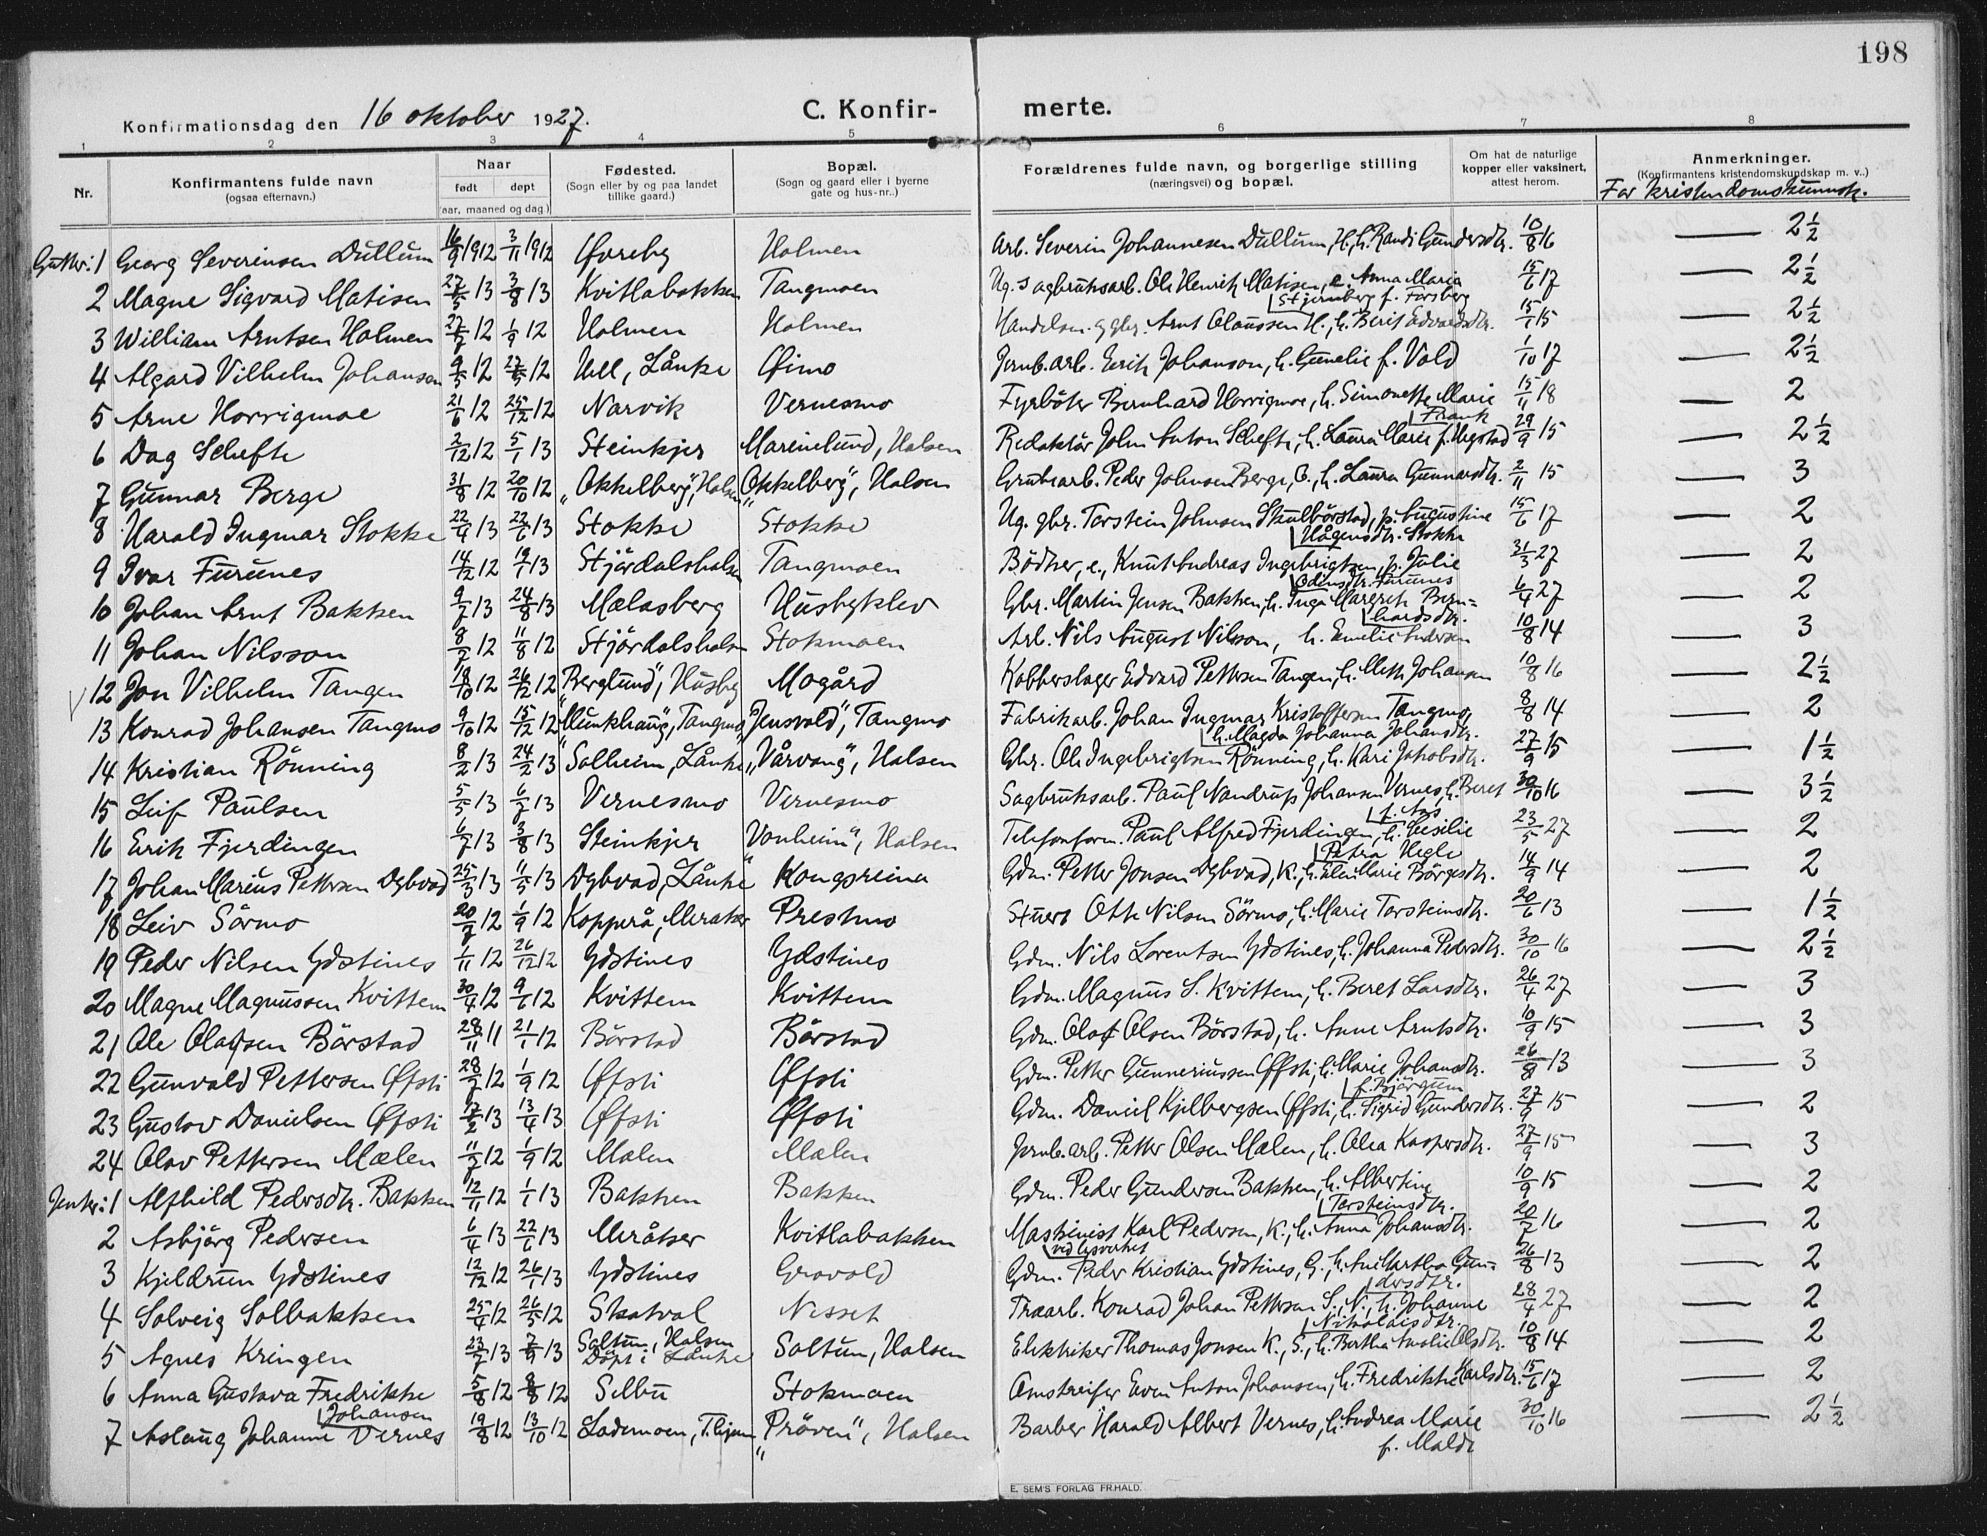 198
Konfirmationsdag den 16 oktober 1927.
C. Konfir-
merte.
1 2 3 4 5 6 7 8
Nr.
Konfirmantens fulde navn
(ogsaa efternavn.)
Naar
født døpt
(aar, maaned og dag)
Fødested.
(Sogn eller by og paa landet
tillike gaard.)
Bopæl.
(Sogn og gaard eller i byerne
gate og hus-nr.)
Forældrenes fulde navn, og borgerlige stilling
(næringsvei) og bopæl.
Om hat de naturlige
kopper eller vaksinert,
attest herom.
Anmerkninger.
(Konfirmantens kristendomskundskap m. v.)
For kristendomskunnsk.
Gutter: 1 Georg Severinsen Dullum 16/9 1912 3/11 1912 Øvreby Holmen Arb. Severin Johannesen Dullum, H., h. Randi Gundersdtr. 10/8 16 — 2½
2 Magne Sigvard Matisen 27/5 13 3/8 13 Kvitlabakken Tangmoen Ug. sagbruksarb. Ole Henrik Matisen, e. Anna Maria 15/6 17 — 2½
Stjernberg f. Forsberg
3 William Arntsen Holmen 27/7 12 1/9 12 Holmen Holmen Handelsm. og gbr. Arnt Olaussen H., h. Berit Edvardsdtr. 15/1 15 — 2½
4 Algard Vilhelm Johansen 9/5 12 27/5 12 Hell, Lånke Øimo Jernb.arb. Erik Johanson, h. Gunelie f. Vold 1/10 17 — 2½
5 Arne Horrigmoe 21/6 12 25/12 12 Narvik Vernesmo Fyrbøter Bernhard Horrigmoe, h. Simonette Marie 15/11 18 — 2
Frank
6 Dag Schefte 2/12 12 5/1 13 Steinkjer Marienlund, Halsen Redaktør John Anton Schefte, h. Laura Marie f. Hegstad 29/9 15 — 2½
7 Gunnar Berge 31/8 12 20/10 12 „Okkelberg", Halsen „Okkelberg", Halsen Grubearb. Peder Johnsen Berge, O., h. Laura Gunnarsdtr. 2/11 15 — 3
8 Harald Ingmar Stokke 22/4 13 22/6 13 Stokke Stokke Ug. gbr. Torstein Johnsen Skulbörstad, p. Augustine 15/6 17 — 2
Hågensdtr. Stokke
9 Ivar Furunes 14/12 12 19/1 13 Stjördalshalsen Tangmoen Bødker, e., Knut Andreas Ingebrigtsen, p. Julie 31/3 27 — 2
Odinsdtr. Furunes
10 Johan Arnt Bakken 9/7 13 24/8 13 Mælasberg Husbyklev Gbr. Martin Jensen Bakken, h. Inga Margreth Bern- 6/4 27 — 2
hardsdtr.
11 Johan Nilsson 8/7 12 11/8 12 Stjördalshalsen Stokmoen Arb. Nils August Nilsson, h. Emelie Andersen 10/8 14 — 3
12 Jon Vilhelm Tangen 18/10 12 26/12 12 „Berglund", Husby Mogård Kobberslager Edvard Pettersen Tangen, h. Meth Johansen 10/8 16 — 2½
13 Konrad Johansen Tangmo 9/10 12 15/12 12 „Munkhaug", Tangmo „Jensvold", Tangmo Fabrikarb. Johan Ingmar Kristoffersen Tangmo, 8/8 14 — 2
h. Magda Johanna Johansdtr.
14 Kristian Rönning 8/2 13 24/2 13 „Solheim, Lånke „Vårvang", Halsen Gbr. Ole Ingebrigtsen Rönning, h. Kari Jakobsdtr. 27/9 15 — 1½
15 Leif Paulsen 5/5 13 6/7 13 Vernesmo Vernesmo Sagbruksarb. Paul Nandrup Johansen Vernes, h. Beret 30/10 16 — 3½
f. Aas
16 Erik Fjerdingen 6/7 13 3/8 13 Steinkjer „Vonheim", Halsen Telefonform. Paul Alfred Fjerdingen, h. Cesilie 23/5 27 — 2
Petra Hegle
17 Johan Marius Pettersen Dybvad 25/3 13 11/5 13 Dybvad, Lånke Kongsreina Gdm. Petter Jonsen Dybvad, K., h. Elen Marie Börgesdtr. 14/9 14 — 2
18 Leiv Sörmo 20/7 12 1/9 12 Kopperå, Meraker Prestmo Stuert Otte Nilsen Sörmo, h. Marie Torsteinsdtr. 20/6 13 — 1½
19 Peder Nilsen Ydstines 1/11 12 26/12 12 Ydstines Ydstines Gdm. Nils Lorentsen Ydstines, h. Johanna Pedersdtr. 30/10 16 — 2½
20 Magne Magnussen Kvittem 30/4 12 9/6 12 Kvittem Kvittem Gdm. Magnus S. Kvittem, h. Beret Larsdtr. 26/4 27 — 3
21 Ole Olafsen Börstad 28/11 11 21/1 12 Börstad Börstad Gdm. Olaf Olsen Börstad, h. Anne Arntsdtr. 10/9 15 — 3
22 Gunvald Pettersen Øfsti 28/7 12 1/9 12 Øfsti Øfsti Gdm. Petter Gunneriussen Øfsti, h. Marie Johansdtr. 26/8 13 — 3
f. Bjørgum
23 Gustav Danielsen Øfsti 17/2 13 13/4 13 Øfsti Øfsti Gdm. Daniel Kjelbergsen Øfsti, h. Sigrid Gundersdtr. 27/9 15 — 2
24 Olav Pettersen Mælen 11/7 12 1/9 12 Mælen Mælen Jernb.arb. Petter Olsen Mælen, h. Olea Kaspersdtr. 27/9 15 — 3
Jenter: 1 Alfhild Pedersdtr. Bakken 12/11 12 1/1 13 Bakken Bakken Gdm. Peder Gundersen Bakken, h. Albertine 10/9 15 — 2
Torsteinsdtr.
2 Asbjörg Pedersen 6/4 13 22/6 13 Meråker Kvitlabakken Maskinist Karl Pedersen, K., h. Anna Johansdtr. 20/7 16 — 2
ved lysverket
3 Kjeldrun Ydstines 12/12 12 26/1 13 Ydstines Gravold Gdm. Peder Kristian Ydstines, G., h. Ane Martha Gun- 26/8 13 — 2
dersdtr.
4 Solveig Solbakken 25/4 12 26/5 12 Skatval Nesset Træarb. Konrad Johan Pettersen S., N., h. Johanne 28/4 27 — 2
Nikolaisdtr.
5 Agnes Kringen 23/7 13 7/9 13 Soltun, Halsen Soltun, Halsen Elektriker Thomas Jonsen K., S., h. Bertha Amalie Olsdtr. 10/8 14 — 2
Döpt i Lånke
6 Anna Gustava Fredrikke 5/8 12 8/8 12 Selbu Stokmoen Omstreifer Even Anton Johansen, h. Fredrikke Karlsdtr. 15/6 17 — 2
Johansen
7 Aslaug Johanne Vernes 19/8 12 13/10 12 Lademoen, T.hjem „Prøven", Halsen Barber Harald Albert Vernes, h. Andrea Marie 30/10 16 — 2½
f. Malde
E. SEM'S FORLAG FR.HALD.